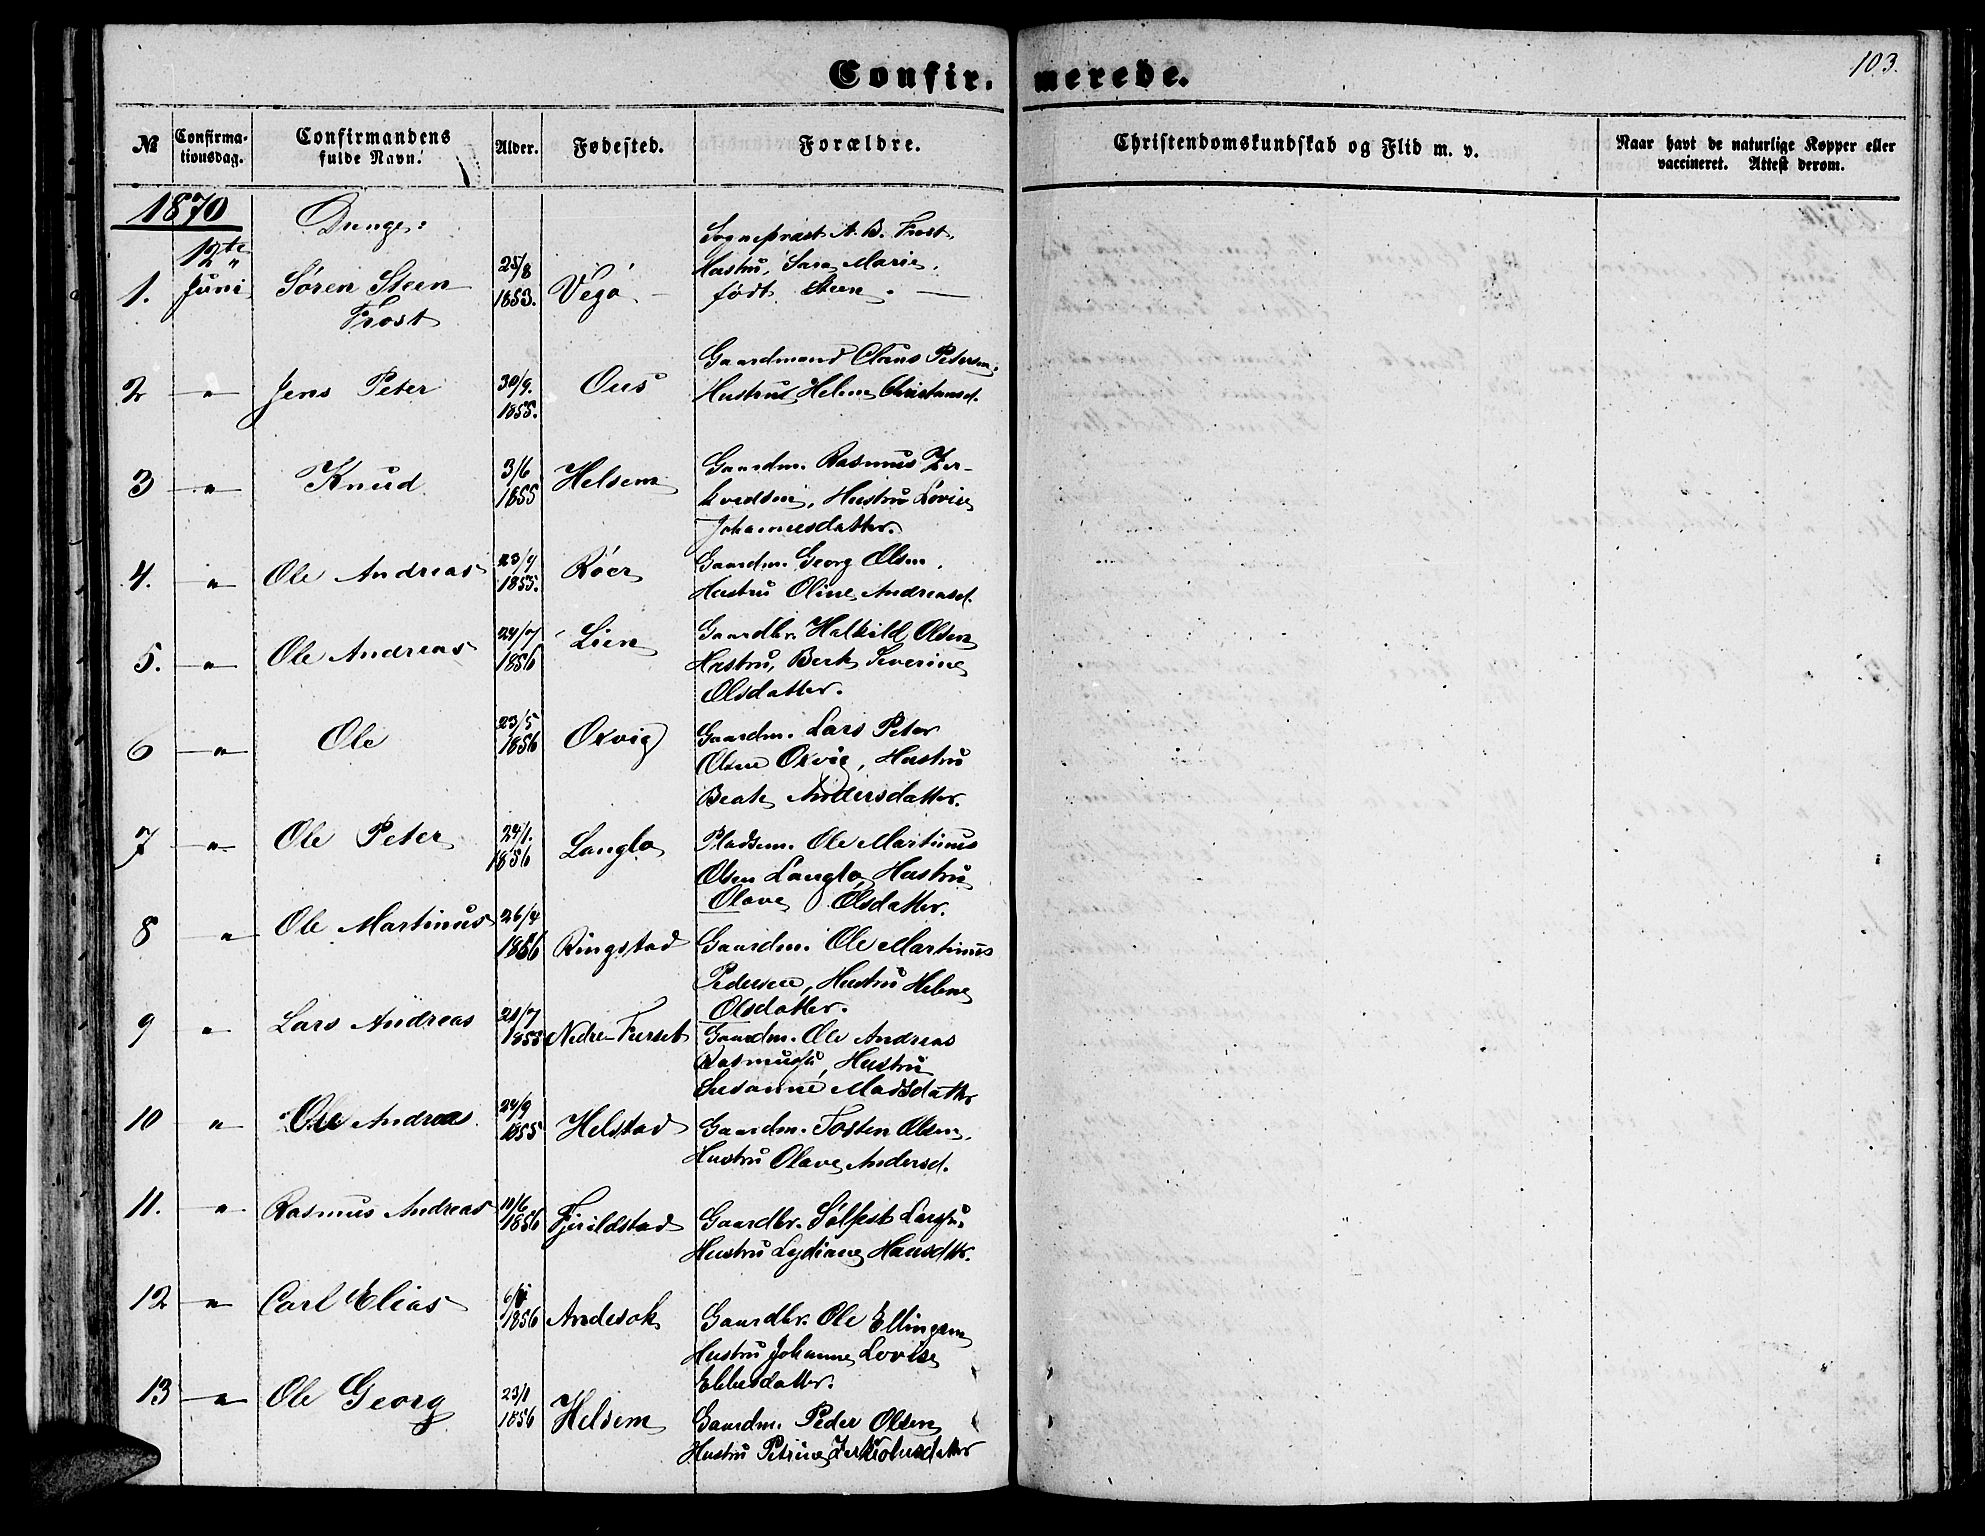 103.
Confir. merede.
№ Confirma- Confirmandens Alder. Fødested. Forældre. Christendomskundskab og Flid m. v. Naar havt de naturlige Kopper eller
tionsdag. fulde Navn. vaccineret. Attest derom.
1870 Drenge:
12te Sognepræst A. B. Frost,
1. Juni Søren Steen 25/8 Vegø — Hustru, Sara Marie,
Frost 1853. født Steen. —
2 —„— Jens Peter 30/9. Ous Gaardmand Claus Petersen,
1855. Hustru Helene Christansd.
3 —„— Knud 3/6 Helsem Gaardm. Rasmus Zer-
1855 kredsen, Hustru Lovise
Johannesdatter.
4. „ Ole Andreas 23/9 Röer Gaardm. Georg Olsen,
1855. Hustru Oline Andreasd.
5. —„— Ole Andreas 24/7 Lien Gaardbr. Halkild Olsen
1856 Hustru, Berte Severine
Olsdatter.
6 —„— Ole 23/5 Oxvig Gaardm. Lars Peter
1856 Olsen Oxvig, Hustru
Beate Andersdatter.
7 —„— Ole Peter 24/1. Langlo Pladsem. Ole Martinus
1856 Olsen Langlo, Hustru
Olave Olsdatter.
8 —„ Ole Martinus 26/4 Ringstad Gaardm. Ole Martinus
1856 Pedersen, Hustru Helene
Olsdatter.
9 „ Lars Andreas 21/7 Nedre-Furset Gaardm. Ole Andreas
1855 Rasmuss., Hustru
Susanne Madsdatter
10 „ Ole Andreas 24/9 Helstad Gaardm. Tosten Olsen,
1855 Hustru Olave Andersd.
11. —„— Rasmus Andreas 10/6 Fjerildstad Gaardbr. Solfest Larss.
1856 Hustru Lydiane Hansdtr.
12 —„— Carl Elias 1856 Andesok Gaardbr. Ole Ellingsen
Hustru Johanne Lovise
Ebbesdatter.
13 —„— Ole Georg 23/1 Helsem Gaardm. Peder Olsen
1856 Hustru Petrine